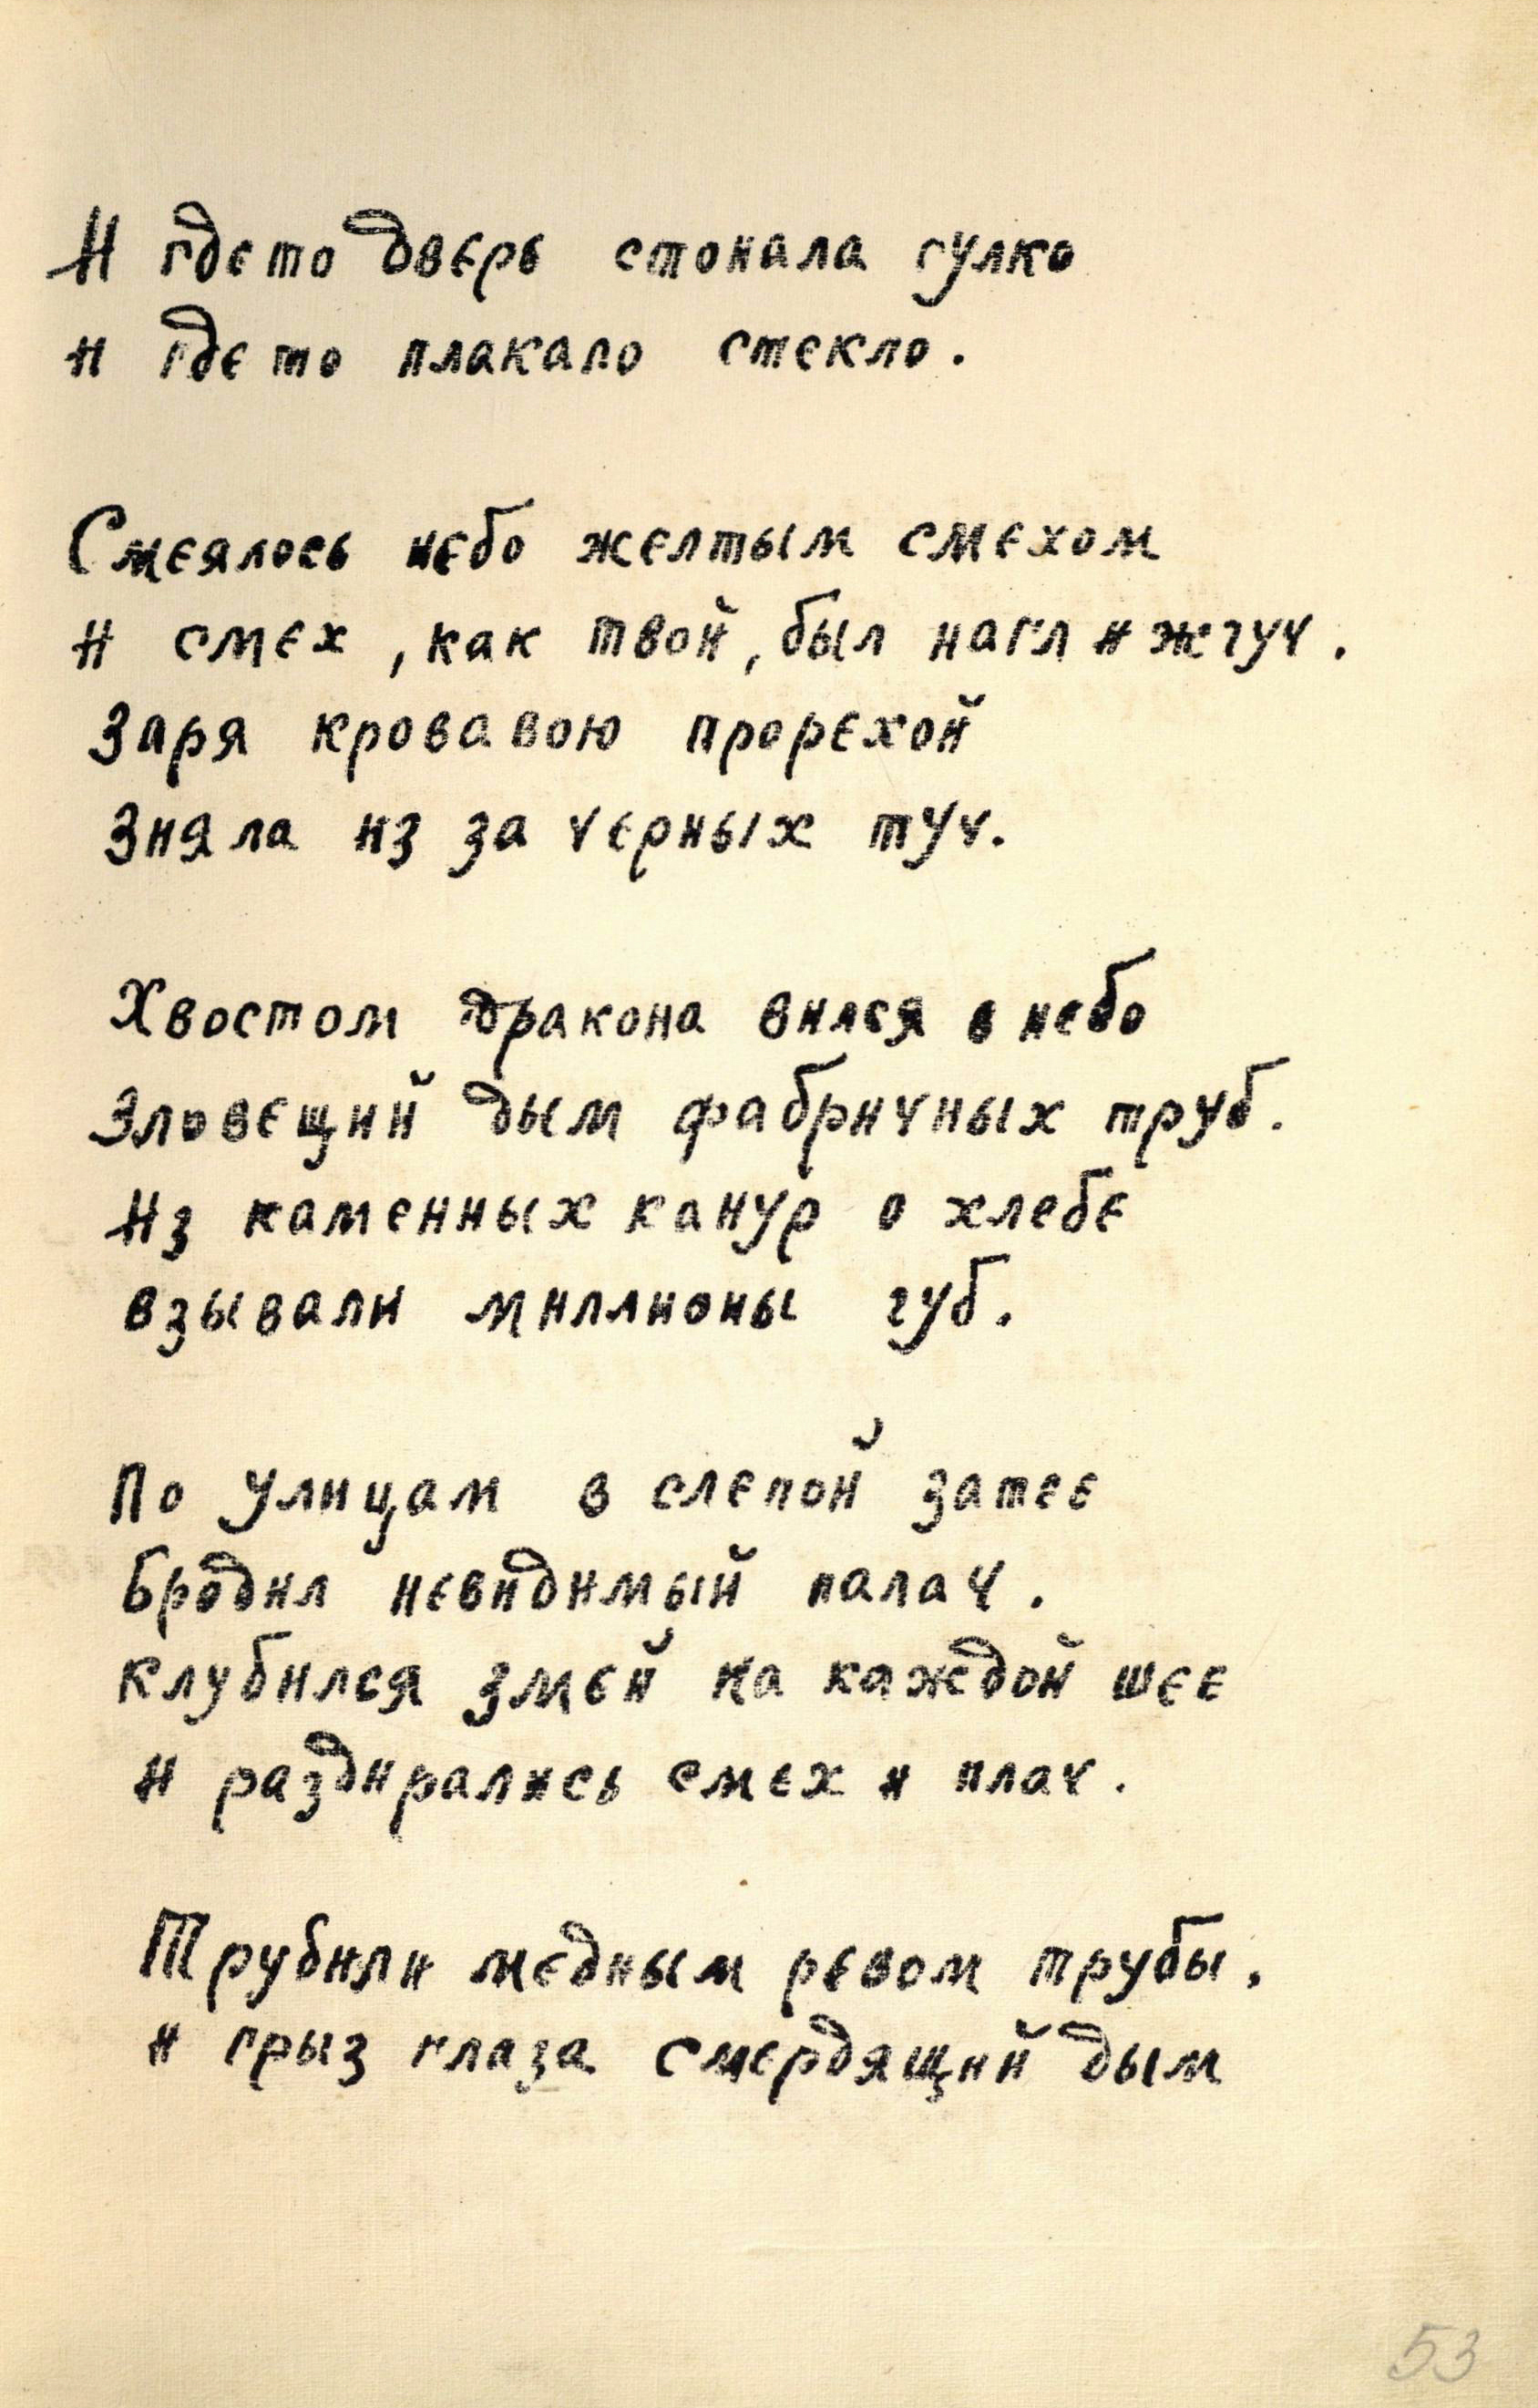 И где то дверь стонала гулко
и где то плакало стекло.
Смеялось небо желтым смехом
и смех, как твой, был нагл и жгуч.
Заря кровавою прорехой
Зияла из за черных туч.
Хвостом дракона вился в небо
Зловещий дым фабричных труб.
Из каменных канур о хлебе
взывали миллионы губ.
По улицам в слепой затее
Бродил невидимый палач.
Клубился змей на каждой шее
и раздирались смех и плач.
Трубили медным ревом трубы,
и грыз глаза смердящий дым
53